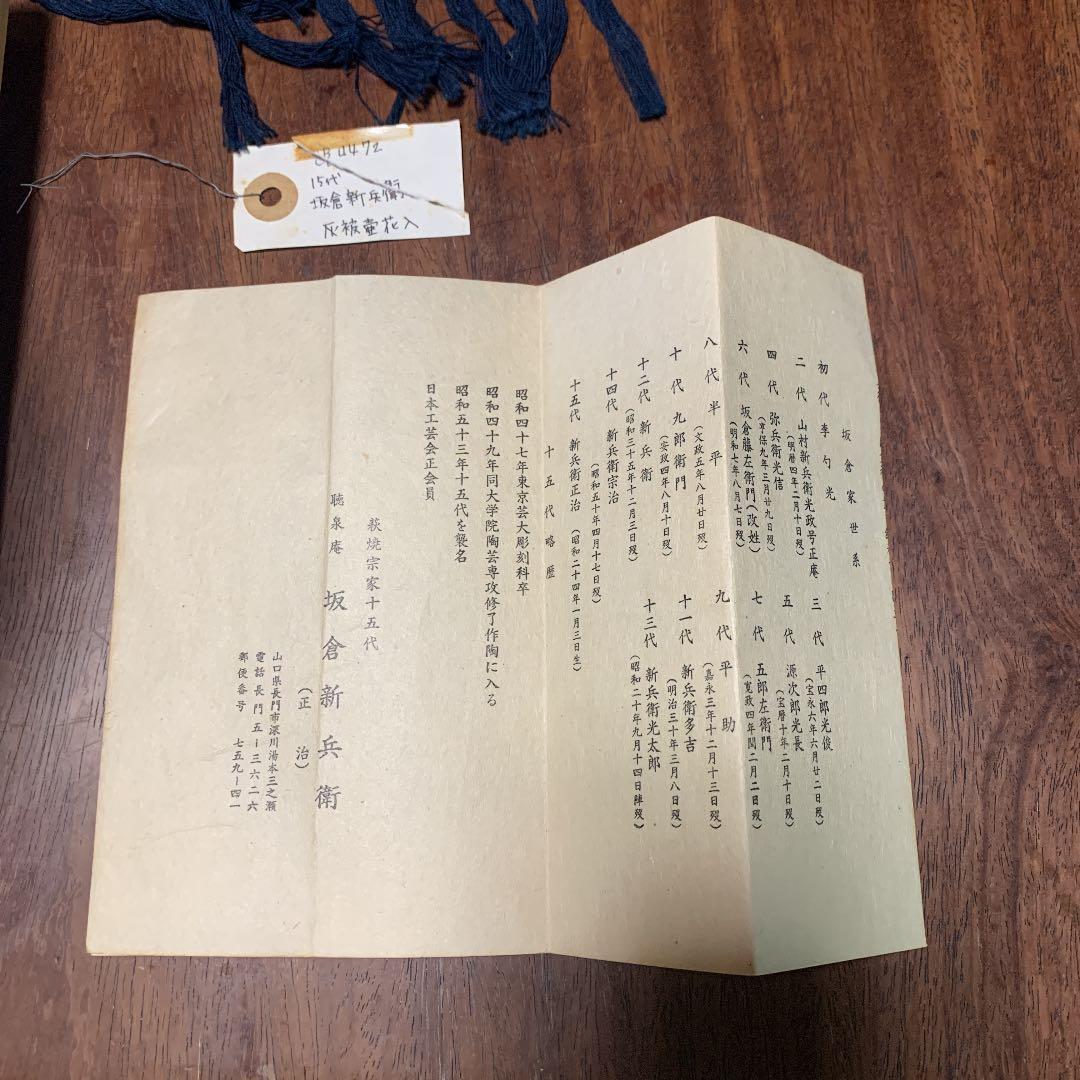 15代
坂倉新兵衛
灰被壷花入
坂倉家世系
初代 李勺光
二代 山村新兵衛光政号正庵
(明暦四年二月十日歿)
三代 平四郎光俊
(宝永六年六月廿二日歿)
四代 弥兵衛光信
(享保九年三月廿九日歿)
五代 源次郎光長
(宝暦十年二月十日歿)
六代 坂倉藤左衛門(改姓)
(明和七年八月七日歿)
七代 五郎左衛門
(寛政四年閏二月二日歿)
八代 半平
(文政五年八月廿日歿)
九代 平助
(嘉永三年十二月十三日歿)
十代 九郎衛門
(安政四年八月十日歿)
十一代 新兵衛多吉
(明治三十年三月八日歿)
十二代 新兵衛
(昭和三十五年十二月三日歿)
十三代 新兵衛光太郎
(昭和二十年九月十四日陣歿)
十四代 新兵衛宗治
(昭和五十年四月十七日歿)
十五代 新兵衛正治 (昭和二十四年一月三日生)
十五代略歴
昭和四十七年東京芸大彫刻科卒
昭和四十九年同大学院陶芸専攻修了作陶に入る
昭和五十三年十五代を襲名
日本工芸会正会員
萩焼宗家十五代
聴泉庵 坂倉新兵衛
(正治)
山口県長門市深川湯本三之瀬
電話長門五ー三六二六
郵便番号 七五九ー四一